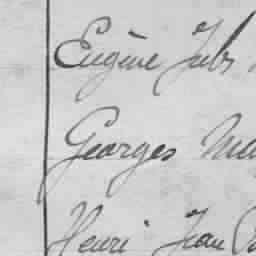 Eugène Jules
Georges Ma
Henri Jean